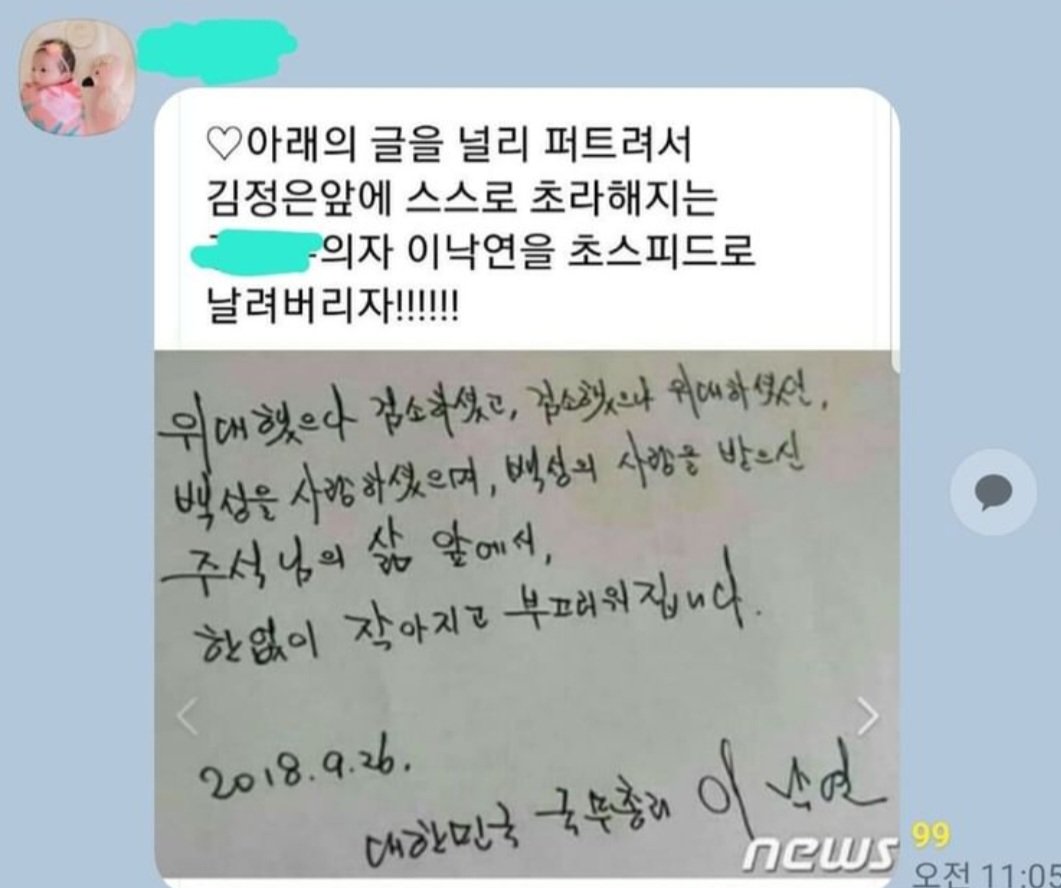 ♡아래의 글을 널리 퍼트려서
김정은앞에 스스로 초라해지는
의자 이낙연을 초스피드로
날려버리자!!!!!!
위대했으나 검소하셨고, 검소했으나 위대하셨던,
백성을 사랑하셨으며, 백성의 사랑을 받으신
주석님의 삶 앞에서,
한없이 작아지고 부끄러워집니다.
2018.9.26.
대한민국 국무총리 이낙연
news
99
오전 11:05